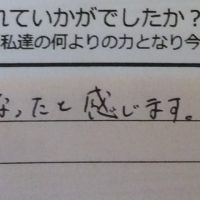 れていかがでしたか？
私達の何よりの力となり今
なったと感じます。